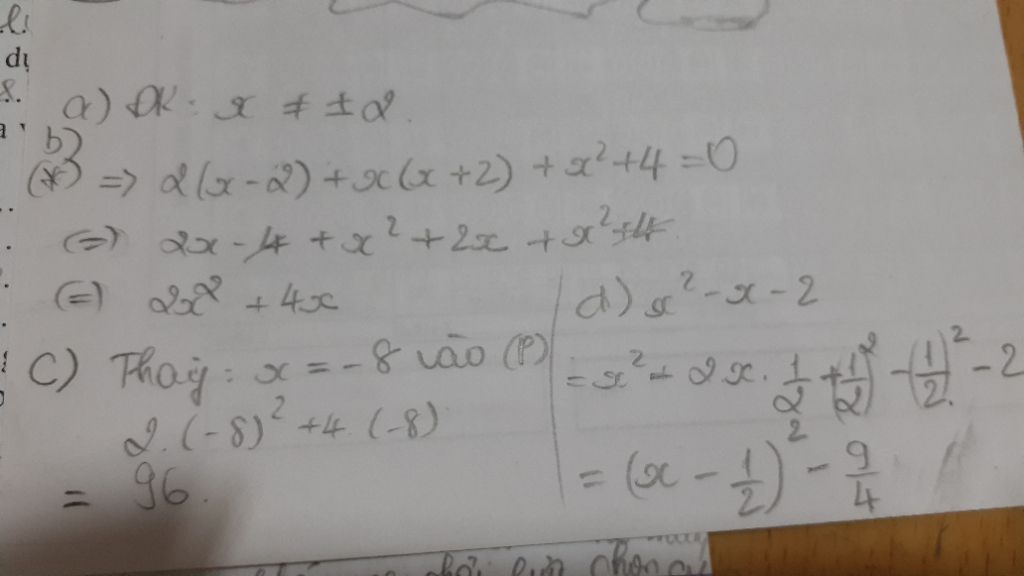 a) ĐK: x ≠ ±2.
b)
(*) => 2(x-2) + x(x+2) + x² + 4 = 0
(=) 2x - 4 + x² + 2x + x² + 4
(=) 2x² + 4x
C) Thay: x = -8 vào (P)
2.(-8)² + 4.(-8)
= 96.
d) x² - x - 2
= x² - 2x. 1/2 + (1/2)² - (1/2)² - 2
= (x - 1/2)² - 9/4